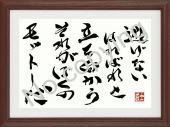 逃げない
はればれと
立ち向かう
それがぼくの
モットーだ
No copying